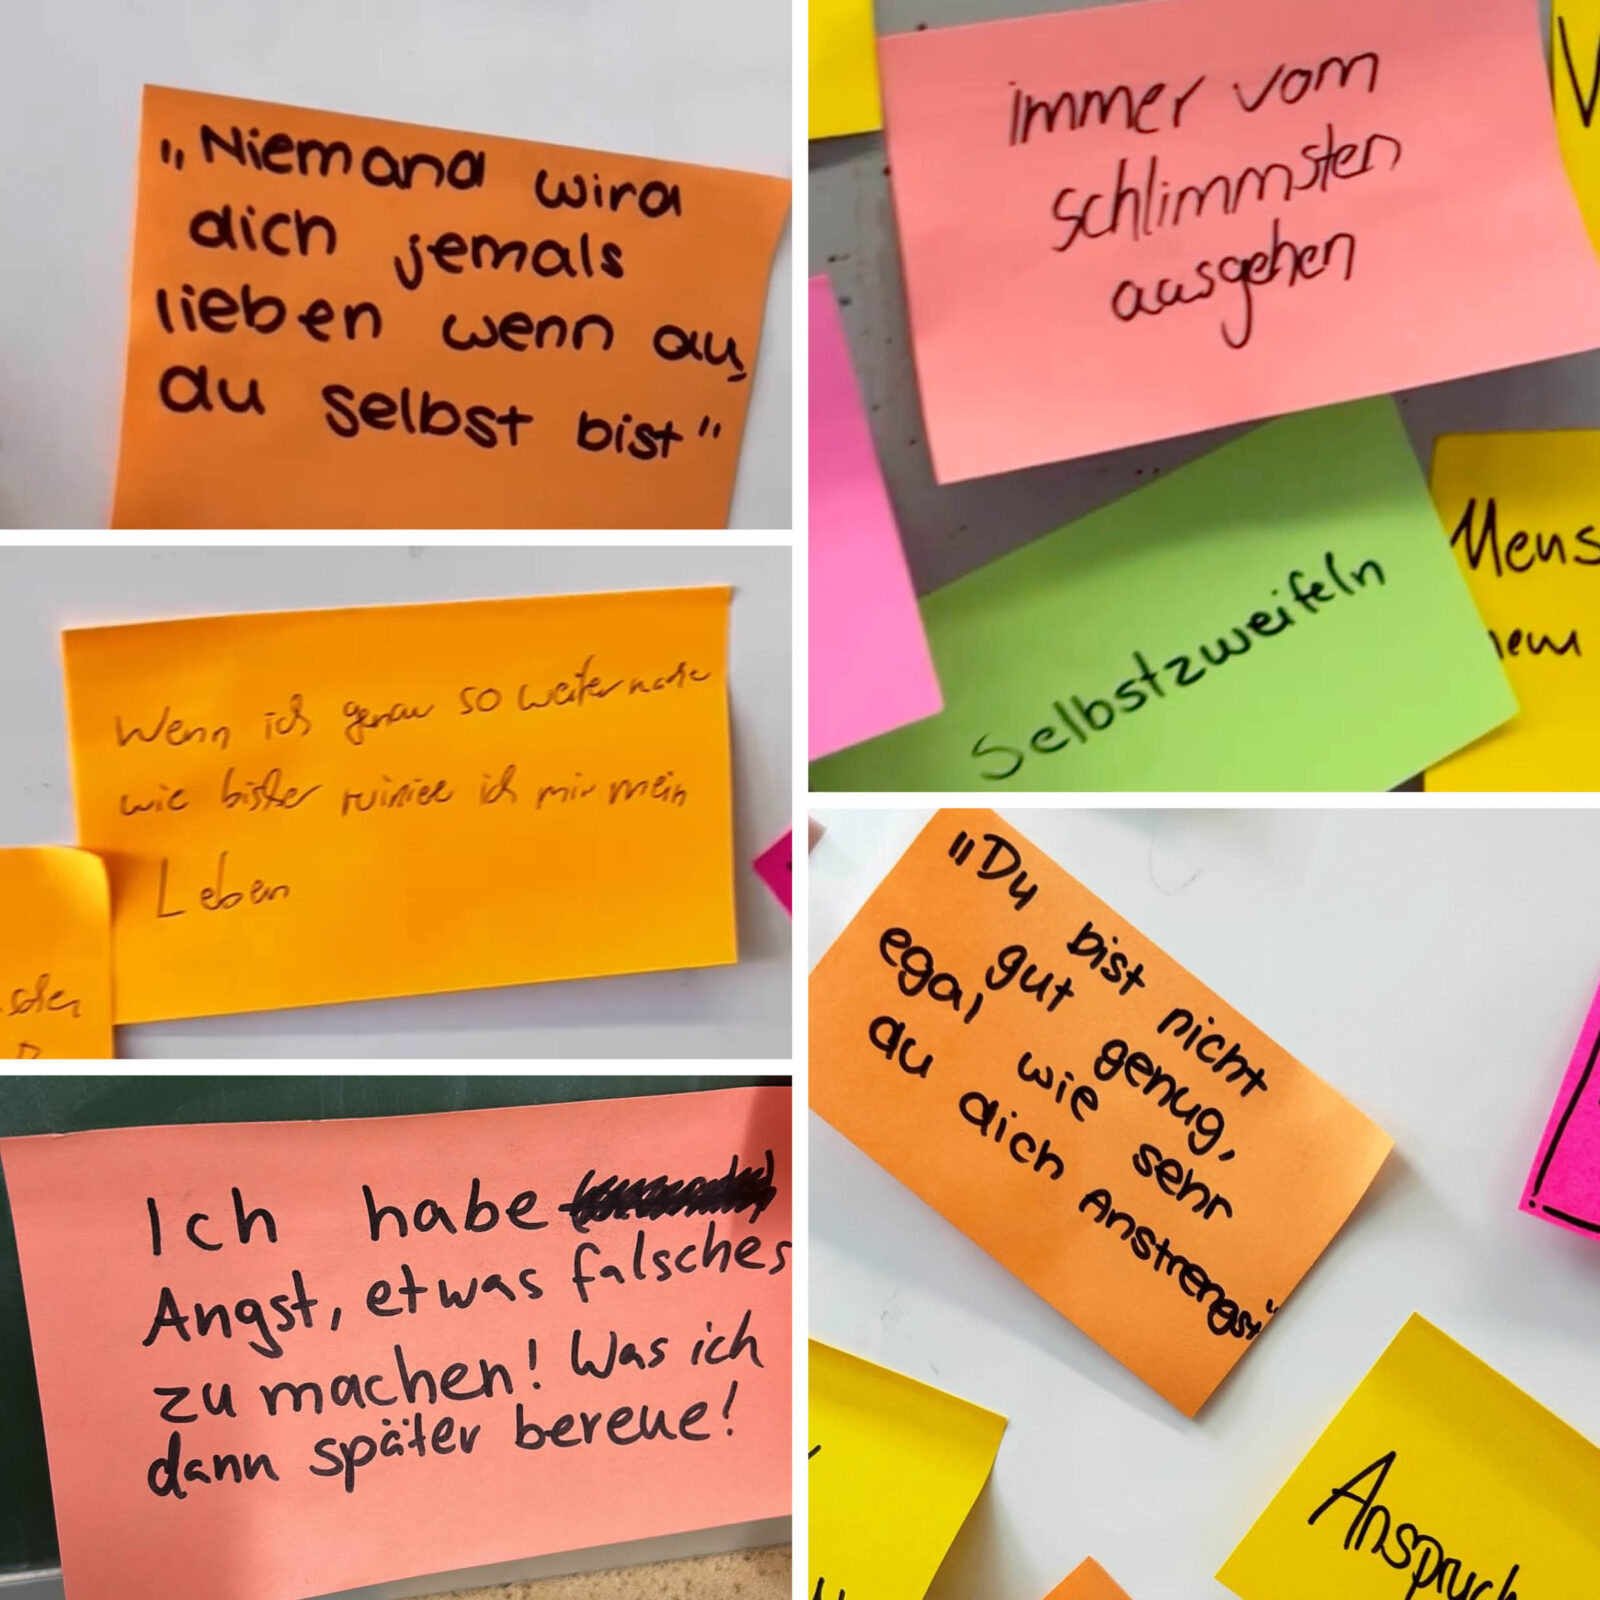 „Niemand wird
dich jemals
lieben wenn du,
du selbst bist"
immer vom
schlimmsten
ausgehen
Selbstzweifeln
Mens
Wenn ich genau so weiter mache
wie bisher ruiniere ich mir mein
Leben
"Du bist nicht
gut genug,
egal wie sehr
du dich Anstrengst"
Anspruch
Ich habe
Angst, etwas falsches
zu machen! Was ich
dann später bereue!